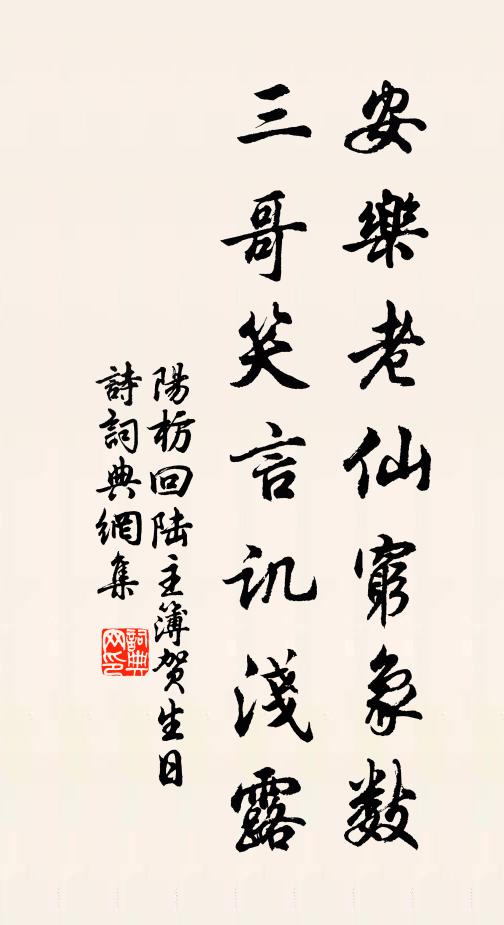 安樂老仙窮象數
三哥笑言讥淺露
陽枥回陆主簿贺生日
詩詞典網集
詞典网印